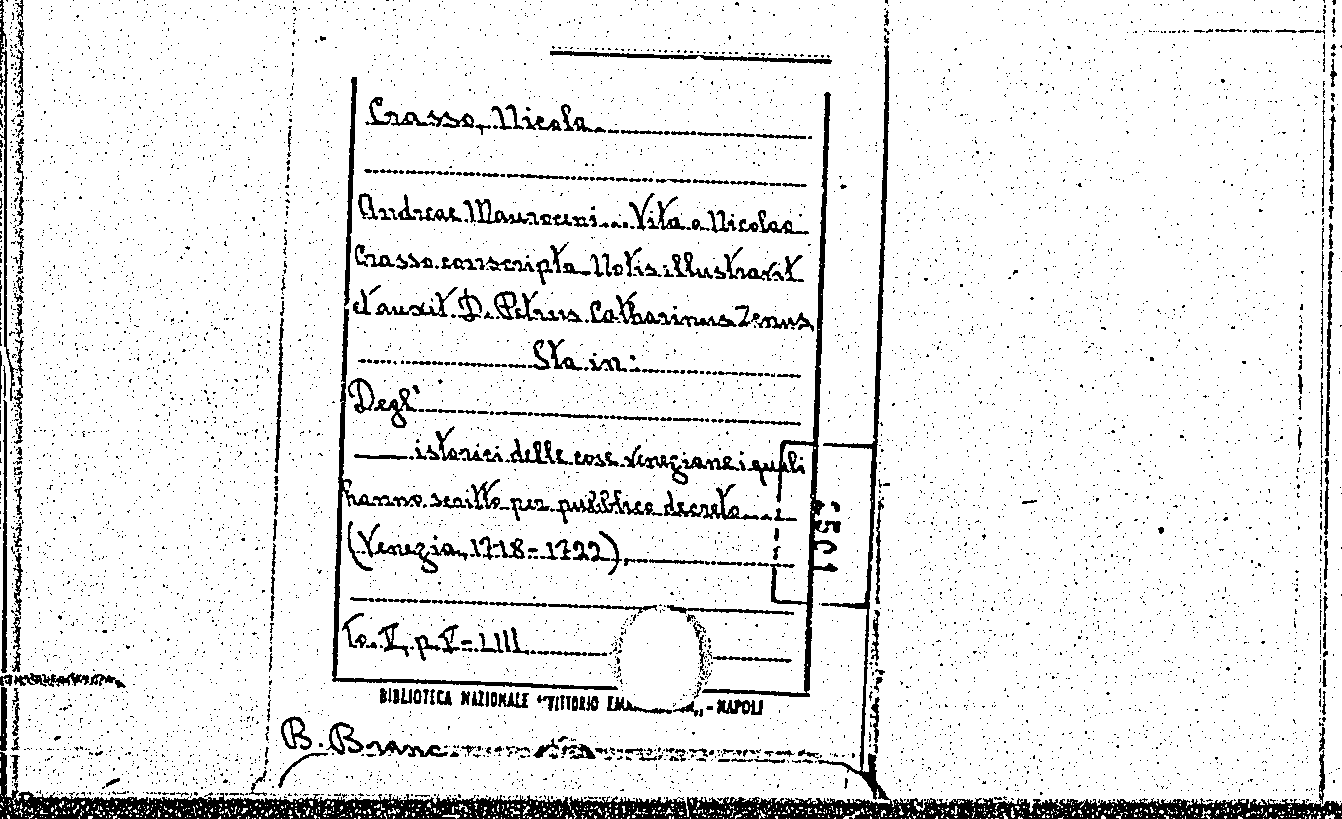 Crasso, Nicola
Andreae Mauroceni... Vita a Nicolao
Crasso conscripta. Notis illustravit
et auxit D. Petrus Catharinus Zenus
Sta in:
Degl'
istorici delle cose veneziane i quali
hanno scritto per pubblico decreto....
(Venezia, 1718-1722),
to. V, p. V-LIII
BIBLIOTECA NAZIONALE "VITTORIO - NAPOLI
B. Branc